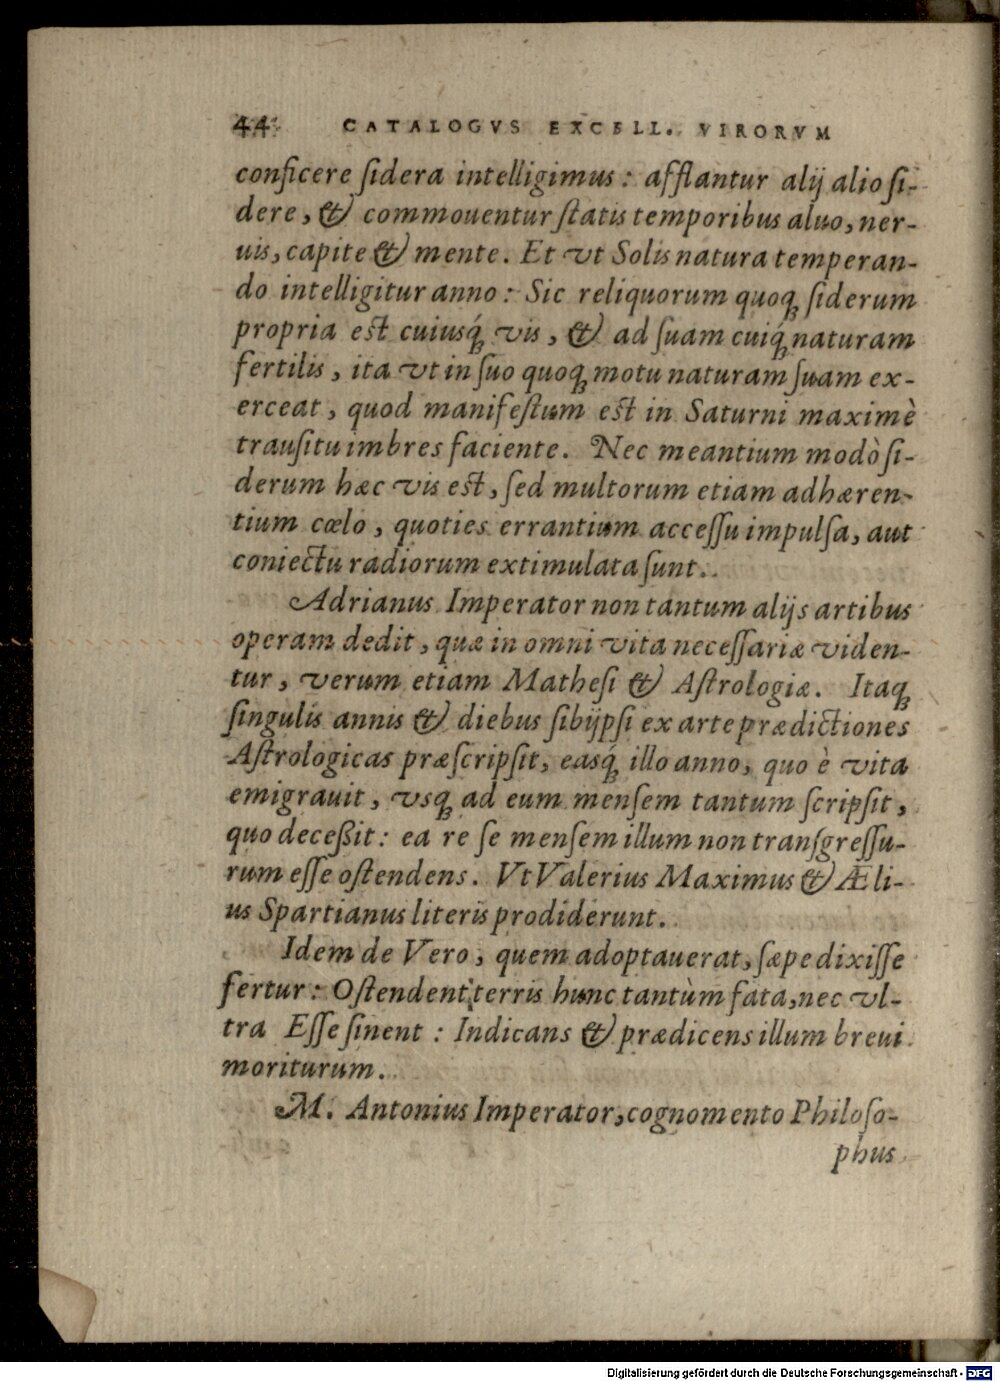 44 CATALOGVS EXCELL. VIRORVM
conficere ſidera intelligimus: afflantur alij alio ſi-
dere, & commouentur ſtatis temporibus aluo, ner-
uis, capite & mente. Et vt Solis natura temperan-
do intelligitur anno: Sic reliquorum quoq; ſiderum
propria eſt cuiusq́; vis, & ad ſuam cuiq́; naturam
fertilis, ita vt in ſuo quoq; motu naturam ſuam ex-
erceat, quod manifeſtum eſt in Saturni maximè
trauſitu imbres faciente. Nec meantium modò ſi-
derum hæc vis eſt, ſed multorum etiam adhæren-
tium cœlo, quoties errantium acceſſu impulſa, aut
coniectu radiorum extimulata ſunt.
Adrianus Imperator non tantum alijs artibus
operam dedit, quæ in omni vita neceſſariæ viden-
tur, verum etiam Matheſi & Aſtrologiæ. Itaq;
ſingulis annis & diebus ſibijpſi ex arte prædictiones
Aſtrologicas præſcripſit, easq́; illo anno, quo è vita
emigrauit, vsq; ad eum menſem tantum ſcripſit,
quo deceßit: ea re ſe menſem illum non tranſgreſſu-
rum eſſe oſtendens. Vt Valerius Maximus & Æli-
us Spartianus literis prodiderunt.
Idem de Vero, quem adoptauerat, ſæpe dixiſſe
fertur: Oſtendent terris hunc tantùm fata, nec vl-
tra Eſſe ſinent: Indicans & prædicens illum breui
moriturum.
M. Antonius Imperator, cognomento Philoſo-
phus
Digitalisierung gefördert durch die Deutsche Forschungsgemeinschaft - DFG